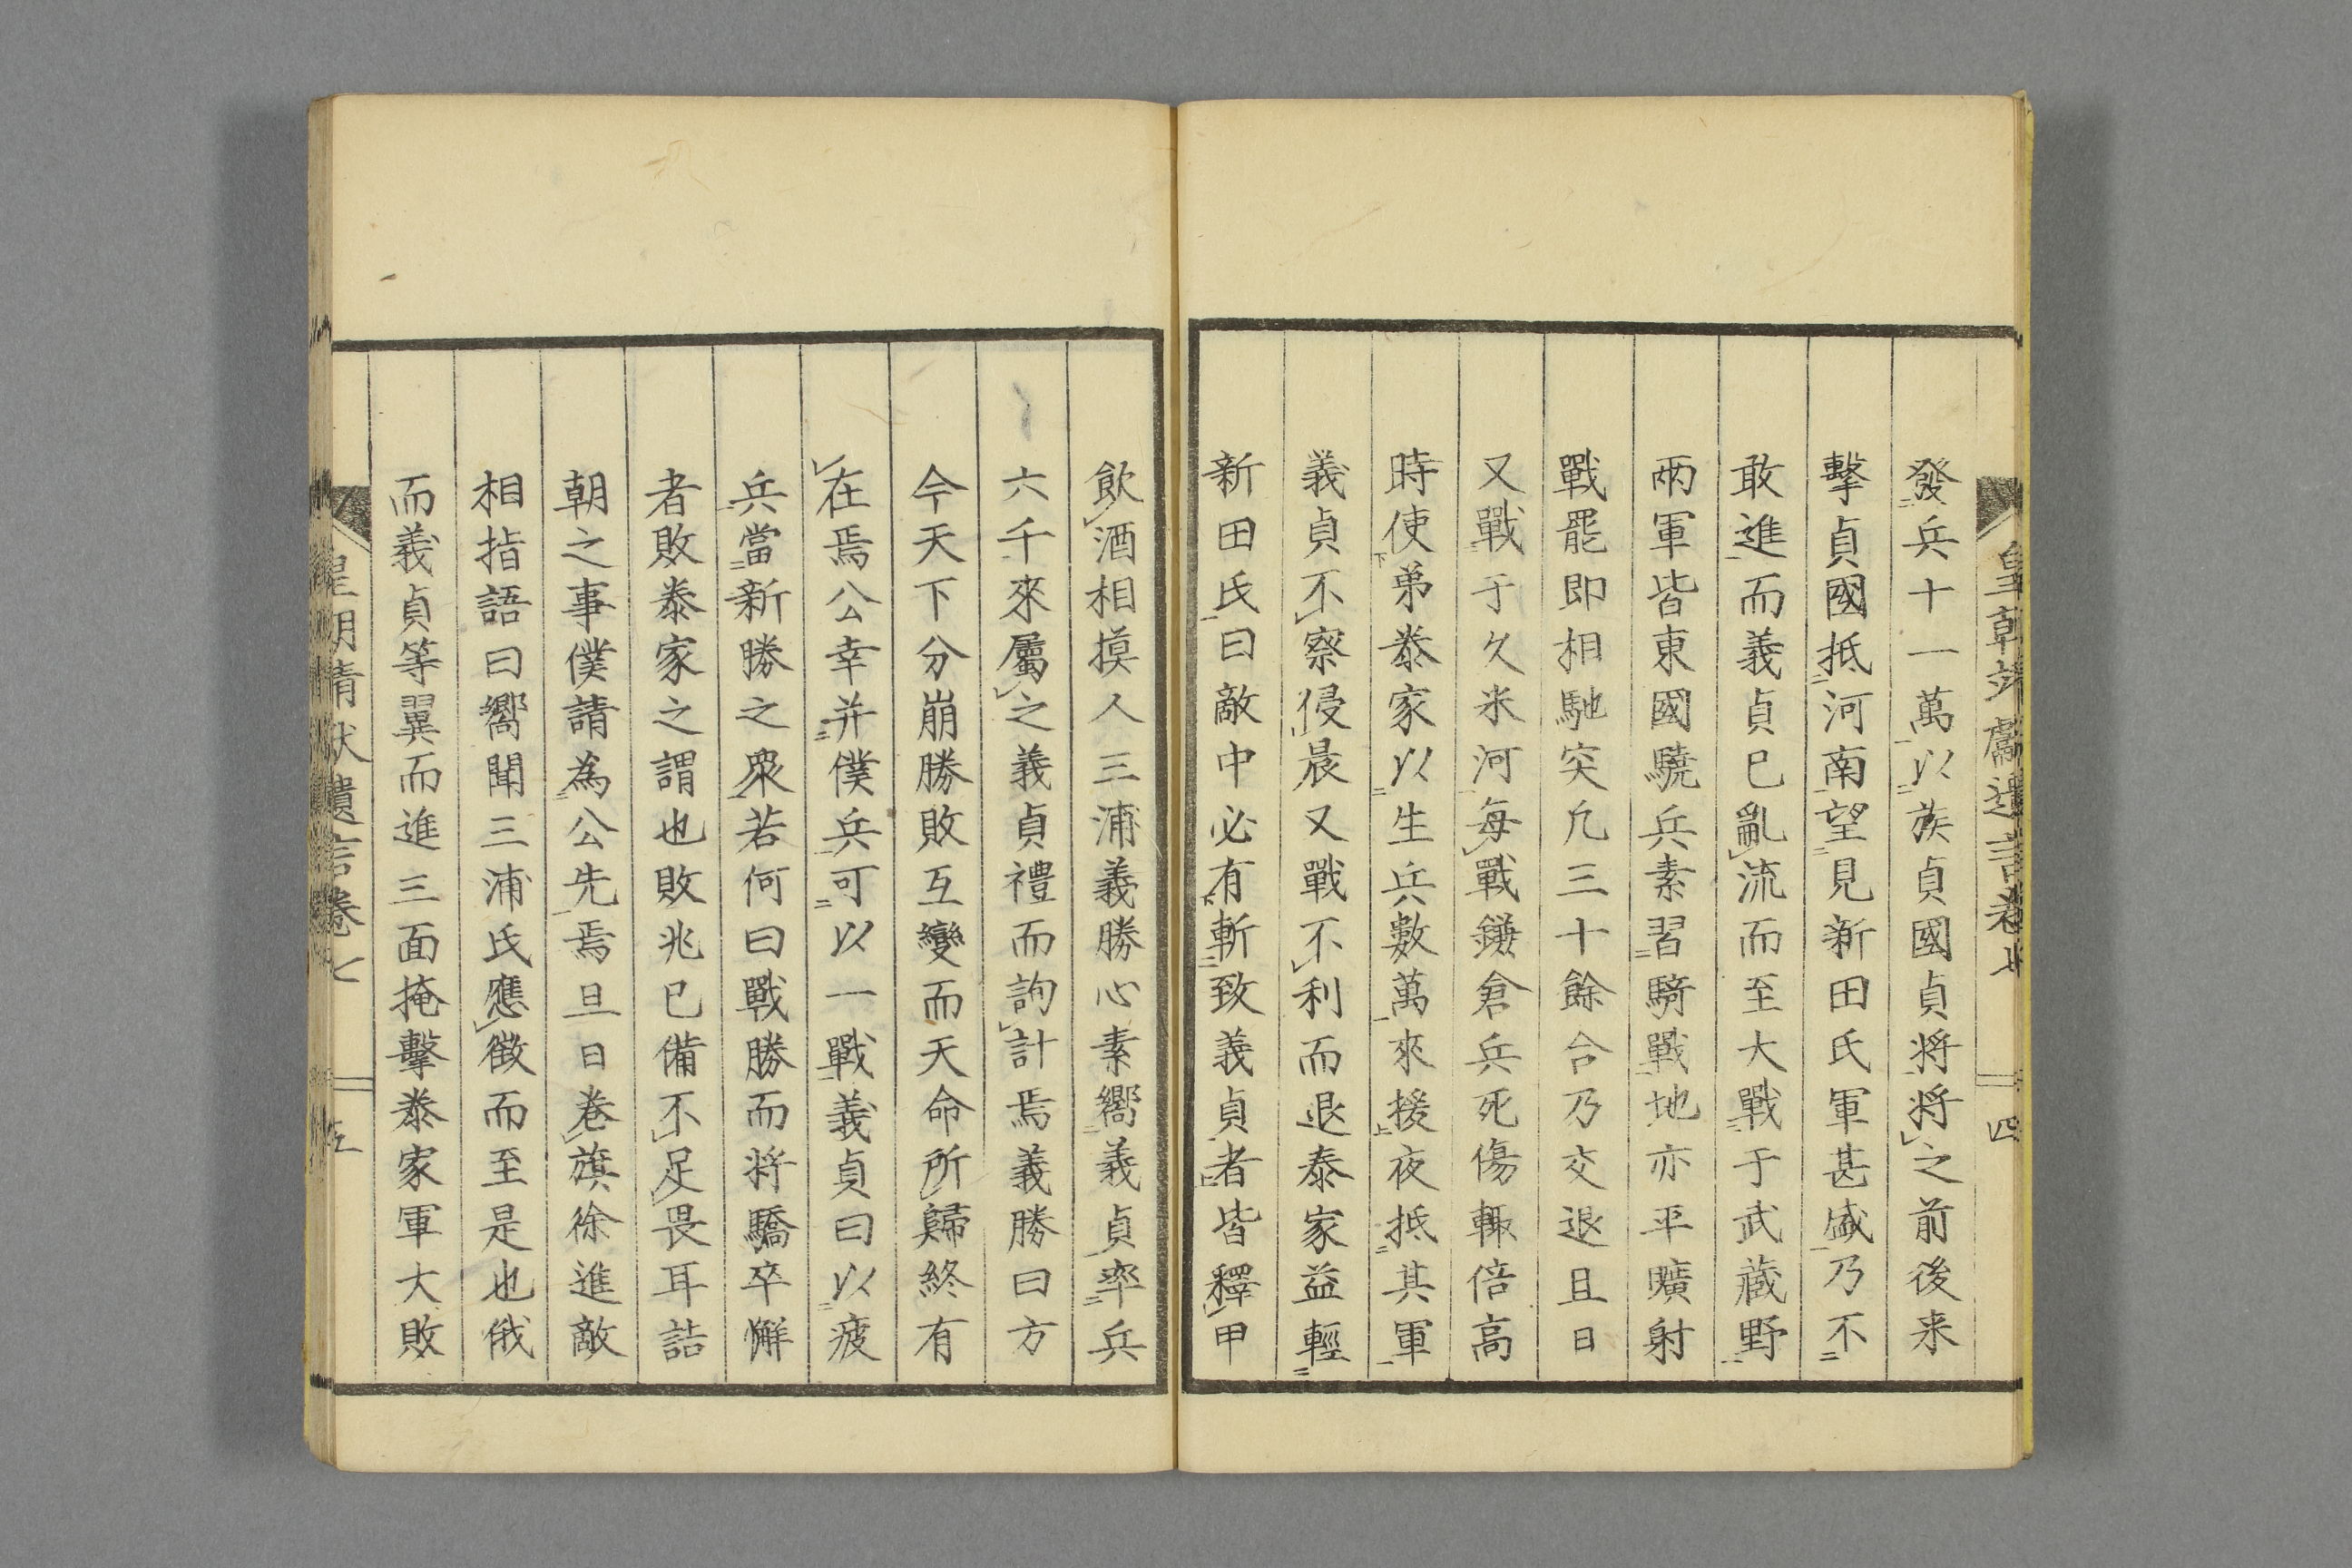 發兵十一萬以族貞國貞将将之前後来
擊貞國抵河南望見新田氏軍甚盛乃不
敢進而義貞已亂流而至大戰于武藏野
兩軍皆東國驍兵素習騎戰地亦平曠射
戰罷即相馳突凢三十餘合乃交退且日
又戰于久米河每戰鎌倉兵死傷輙倍高
時使弟泰家以生兵數萬來援夜抵其軍
義貞不察侵晨又戰不利而退泰家益輕
新田氏曰敵中必有斬致義貞者皆釋甲
飲酒相摸人三浦義勝心素嚮義貞率兵
六千來屬之義貞禮而詢計焉義勝曰方
今天下分崩勝敗互變而天命所歸終有
在焉公幸并僕兵可以一戰義貞曰以疲
兵當新勝之衆若何曰戰勝而将驕卒懈
者敗泰家之謂也敗兆已備不足畏耳詰
朝之事僕請為公先焉旦日卷旗徐進敵
相指語曰嚮聞三浦氏應徵而至是也俄
而義貞等翼而進三面掩擊泰家軍大敗